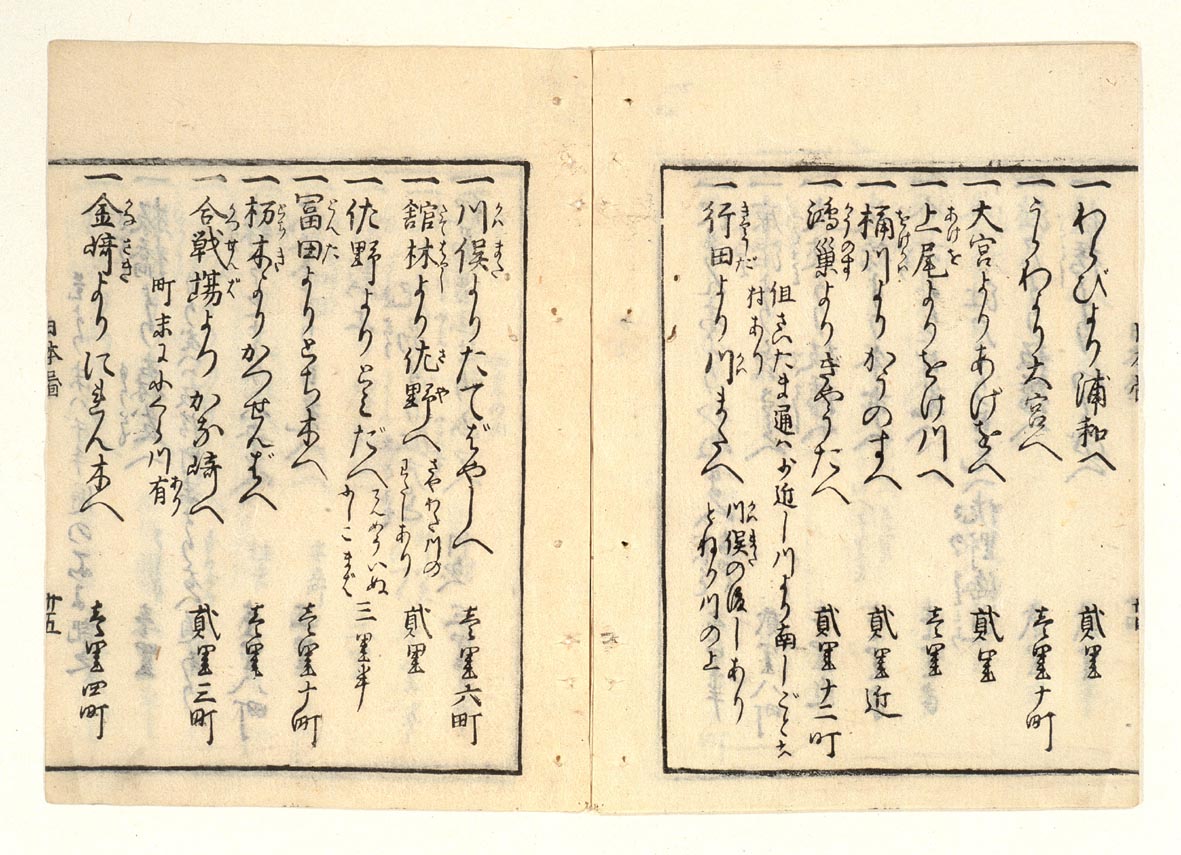 一 わらびより浦和へ 貳里
一 うらわより大宮へ 壱里十町
一 大宮よりあげをへ 貳里
一 上尾よりをけ川へ 壱里
あけを
一 桶川よりかうのすへ 貳里近
をけがハ
一 鴻巣よりぎやうだへ 貳里十二町
かうのす
但さいたま通ハ少近し川より南し
村あり
一 行田より川またへ
きやうだ
川俣の渡しあり
とね川の上
一 川俣よりたてばやしへ 壱里六町
かハまた
一 舘林より佐野へ 貳里
たてはやし
さや
さやわた川の
わたしあり
一 佐野よりとみだへ 三里半
一 冨田よりとち木へ 壱里十町
とんた
一 栃木よりかつせんばへ 壱里
とちき
一 合戦場よりかな崎へ 貳里三町
かつせんば
町末に小くら川有
あり
一 金崎よりにれん木へ 壱里四町
かなさき
日本圖
廿五